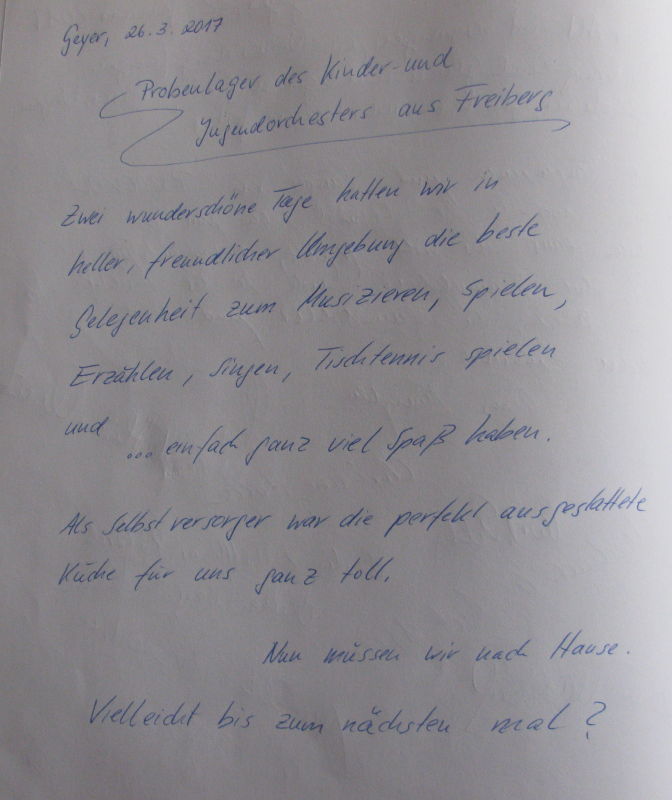 Geyer, 26.3.2017
Probenlager des Kinder- und
Jugendorchesters aus Freiberg
Zwei wunderschöne Tage hatten wir in
heller, freundlicher Umgebung die beste
Gelegenheit zum Musizieren, Spielen,
Erzählen, Singen, Tischtennis spielen
und ... einfach ganz viel Spaß haben.
Als Selbstversorger war die perfekt ausgestattete
Küche für uns ganz toll.
Nun müssen wir nach Hause.
Vielleicht bis zum nächsten mal?